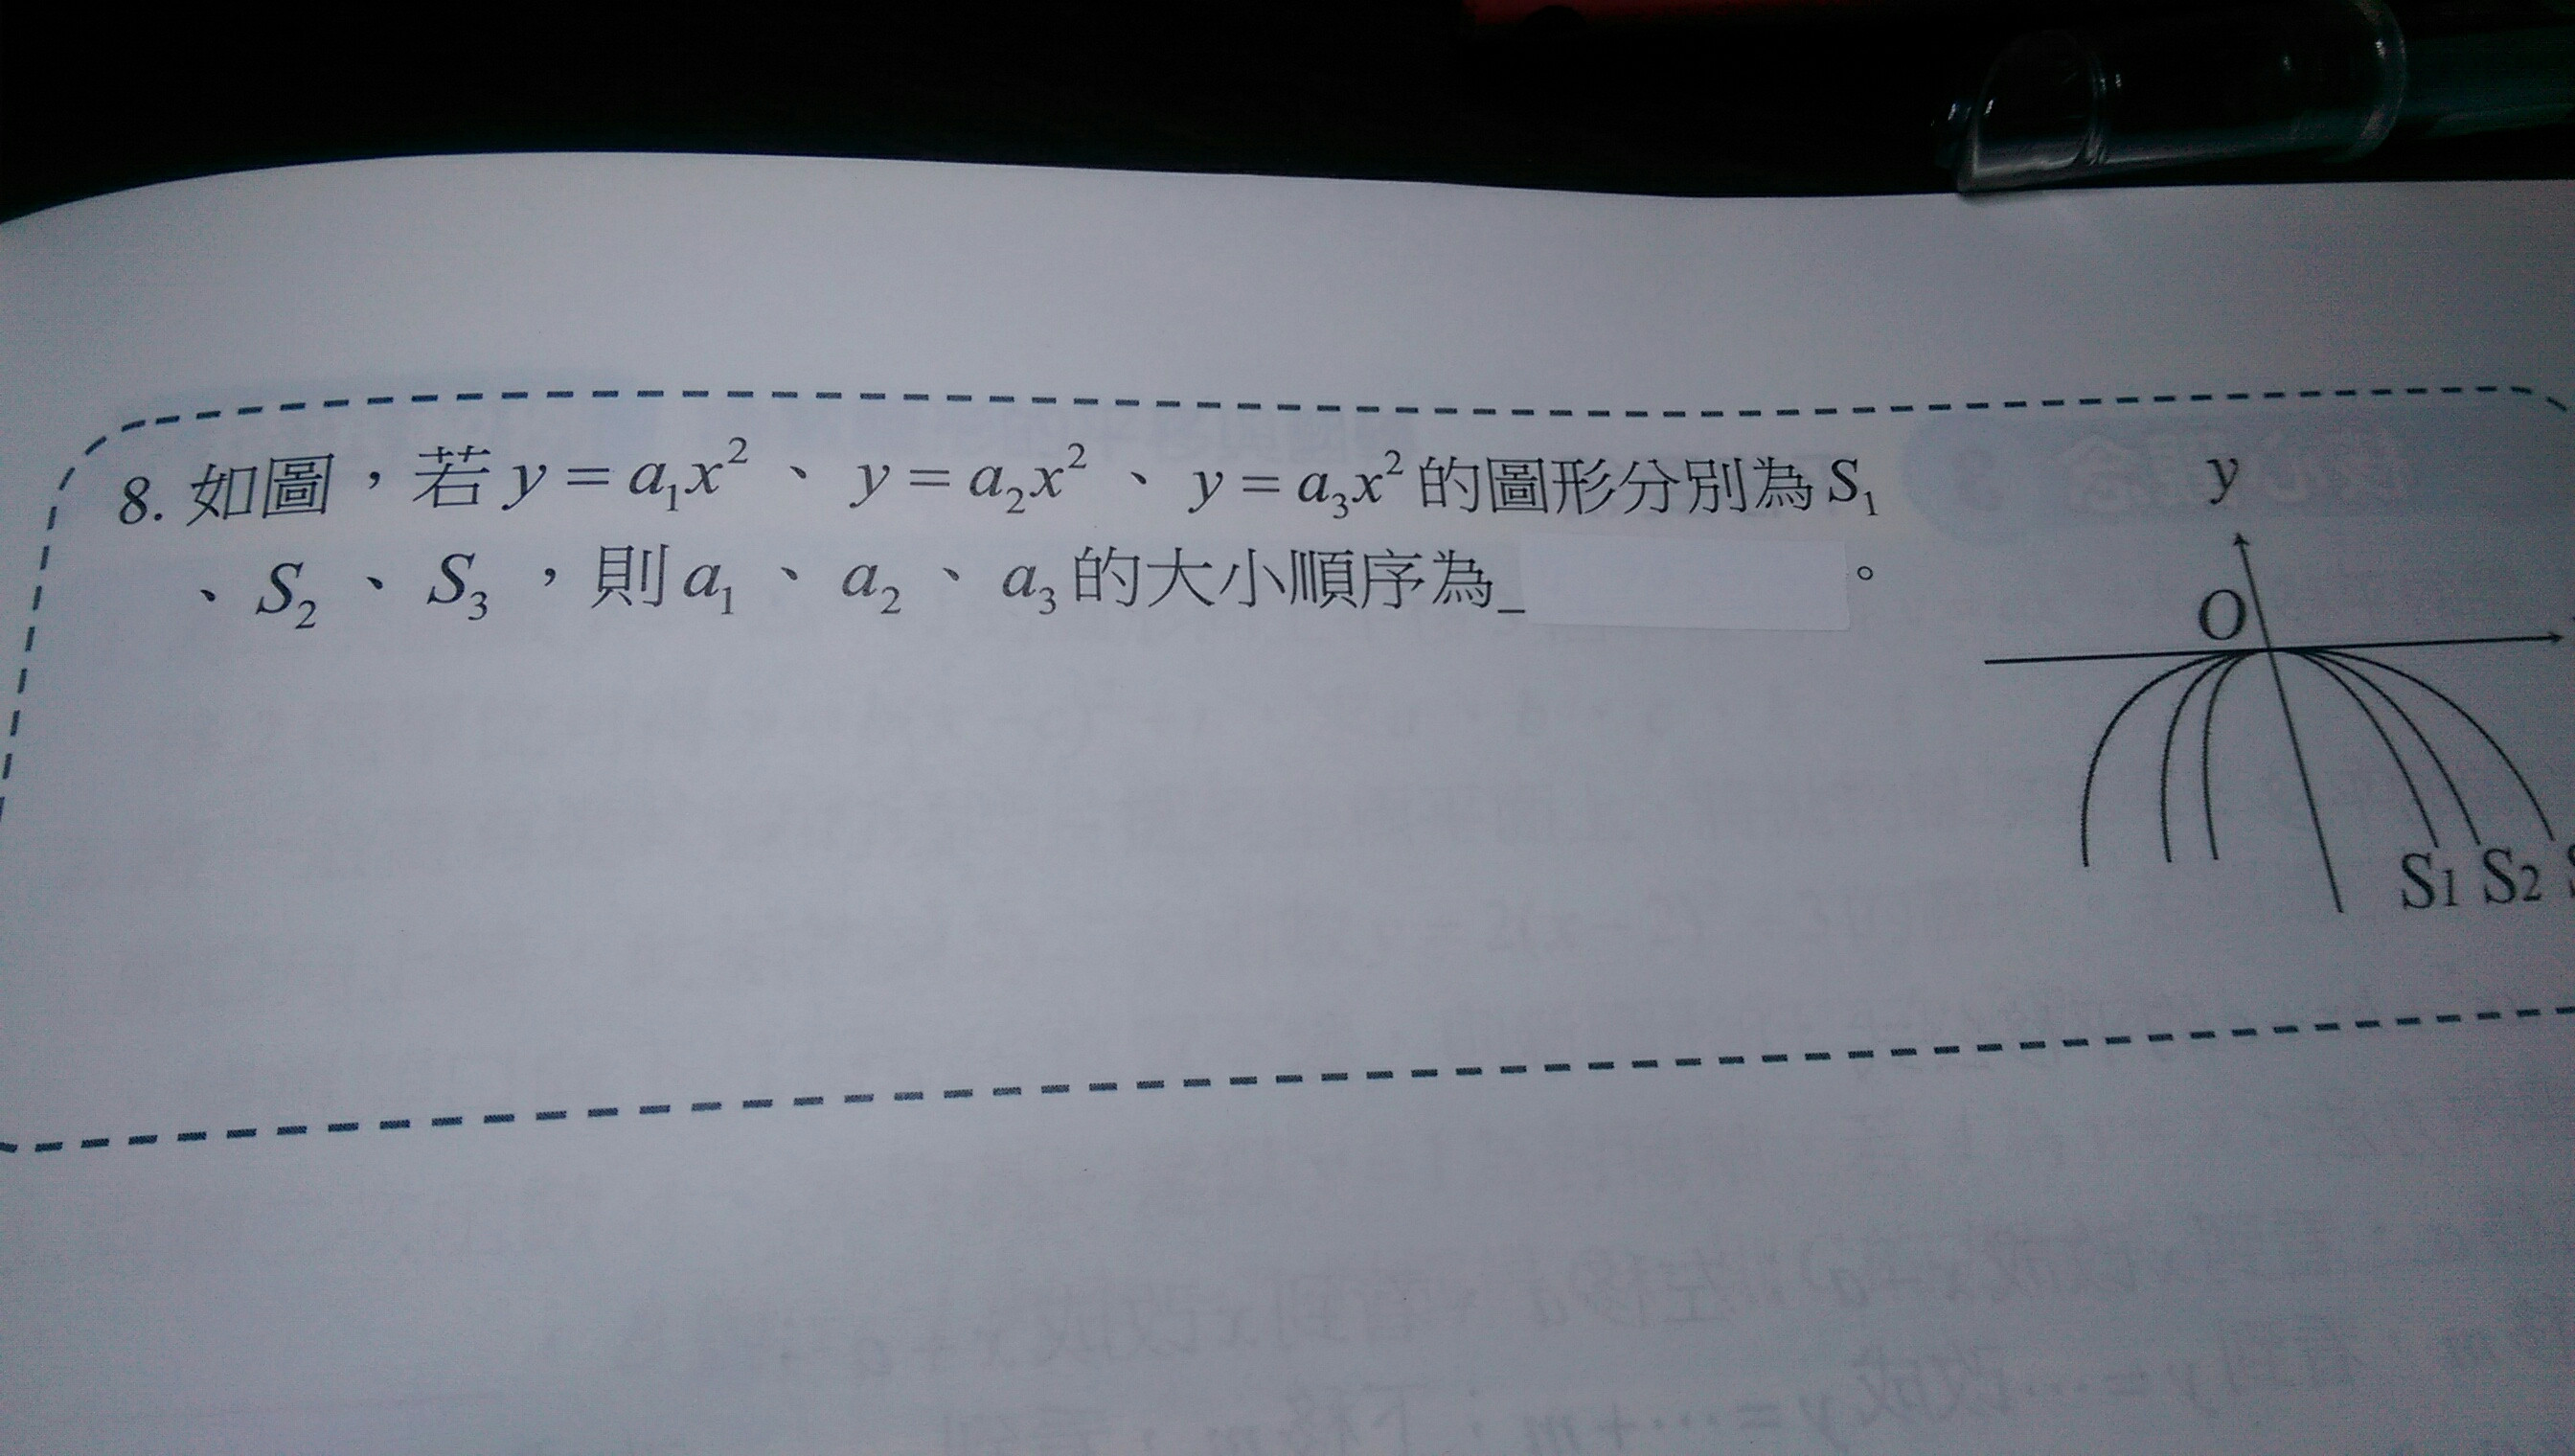 8. 如圖，若 y = a₁x² 、 y = a₂x² 、 y = a₃x² 的圖形分別為 S₁
、 S₂ 、 S₃ ，則 a₁ 、 a₂ 、 a₃ 的大小順序為_ 。
y
O
S1 S2